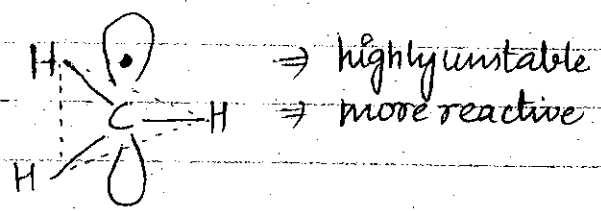 H
⇒ highly unstable
C H ⇒ more reactive
H